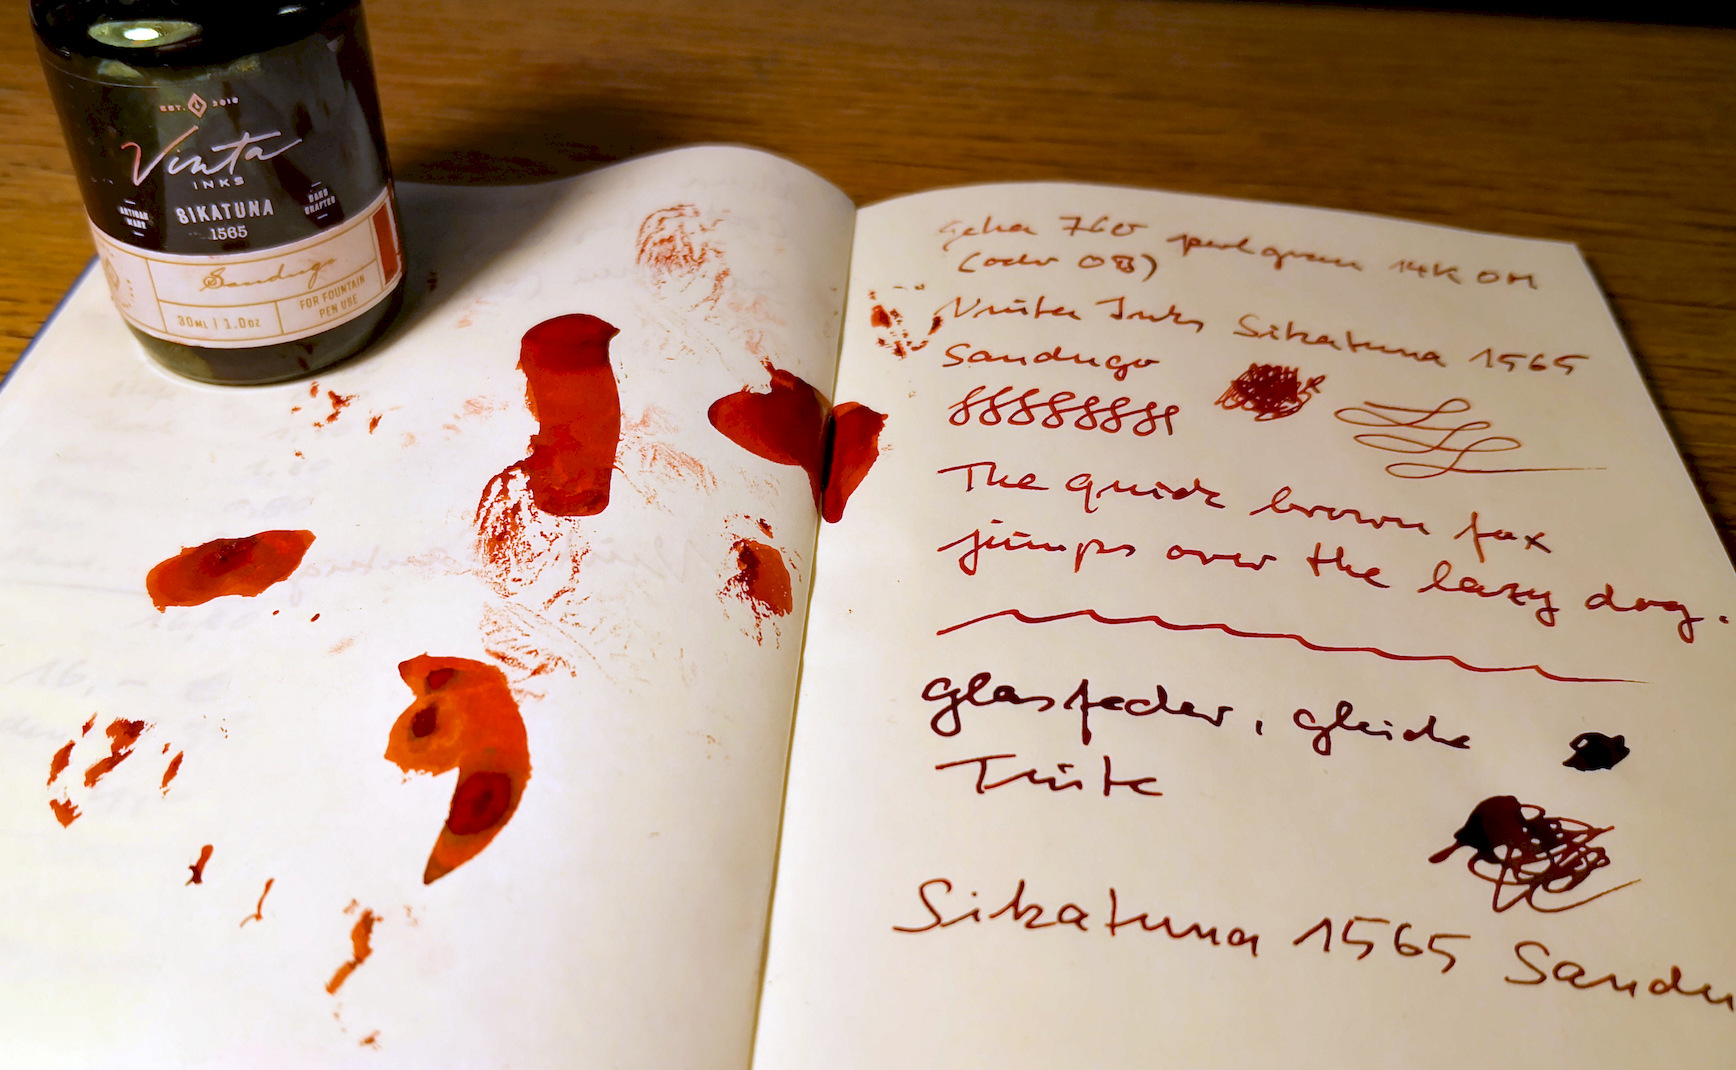 EST. 2018
Vinta
INKS
ARTISAN MADE
SIKATUNA
1565
HAND CRAFTED
Sandugo
30ML | 1.0oz
FOR FOUNTAIN
PEN USE
Geha 760 14K OM
(oder OB)
Vinta Inks Sikatuna 1565
Sandugo
The quick brown fox
jumps over the lazy dog.
Glasfeder, gleiche
Tinte
Sikatuna 1565 Sandu